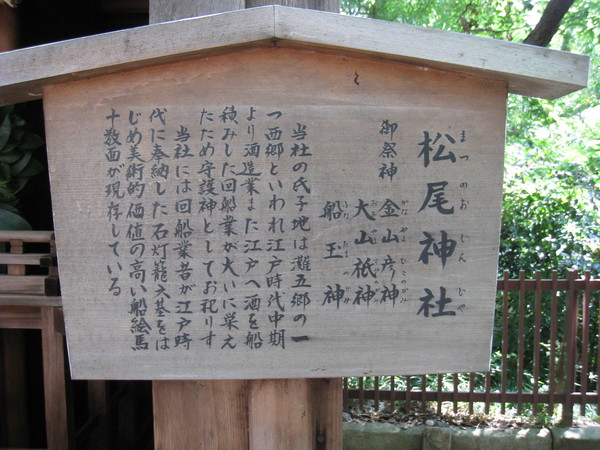 松尾神社
まつのおじんじゃ
御祭神 金山彦神
かなやまひこのかみ
大山祇神
船玉神
当社の氏子地は灘五郷の一
つ西郷といわれ江戸時代中期
より酒造業また江戸へ酒を船
積みした回船業が大いに栄え
たため守護神としてお祀りす
当社には回船業者が江戸時
代に奉納した石灯籠六基をは
じめ美術的価値の高い船絵馬
十数面が現存している